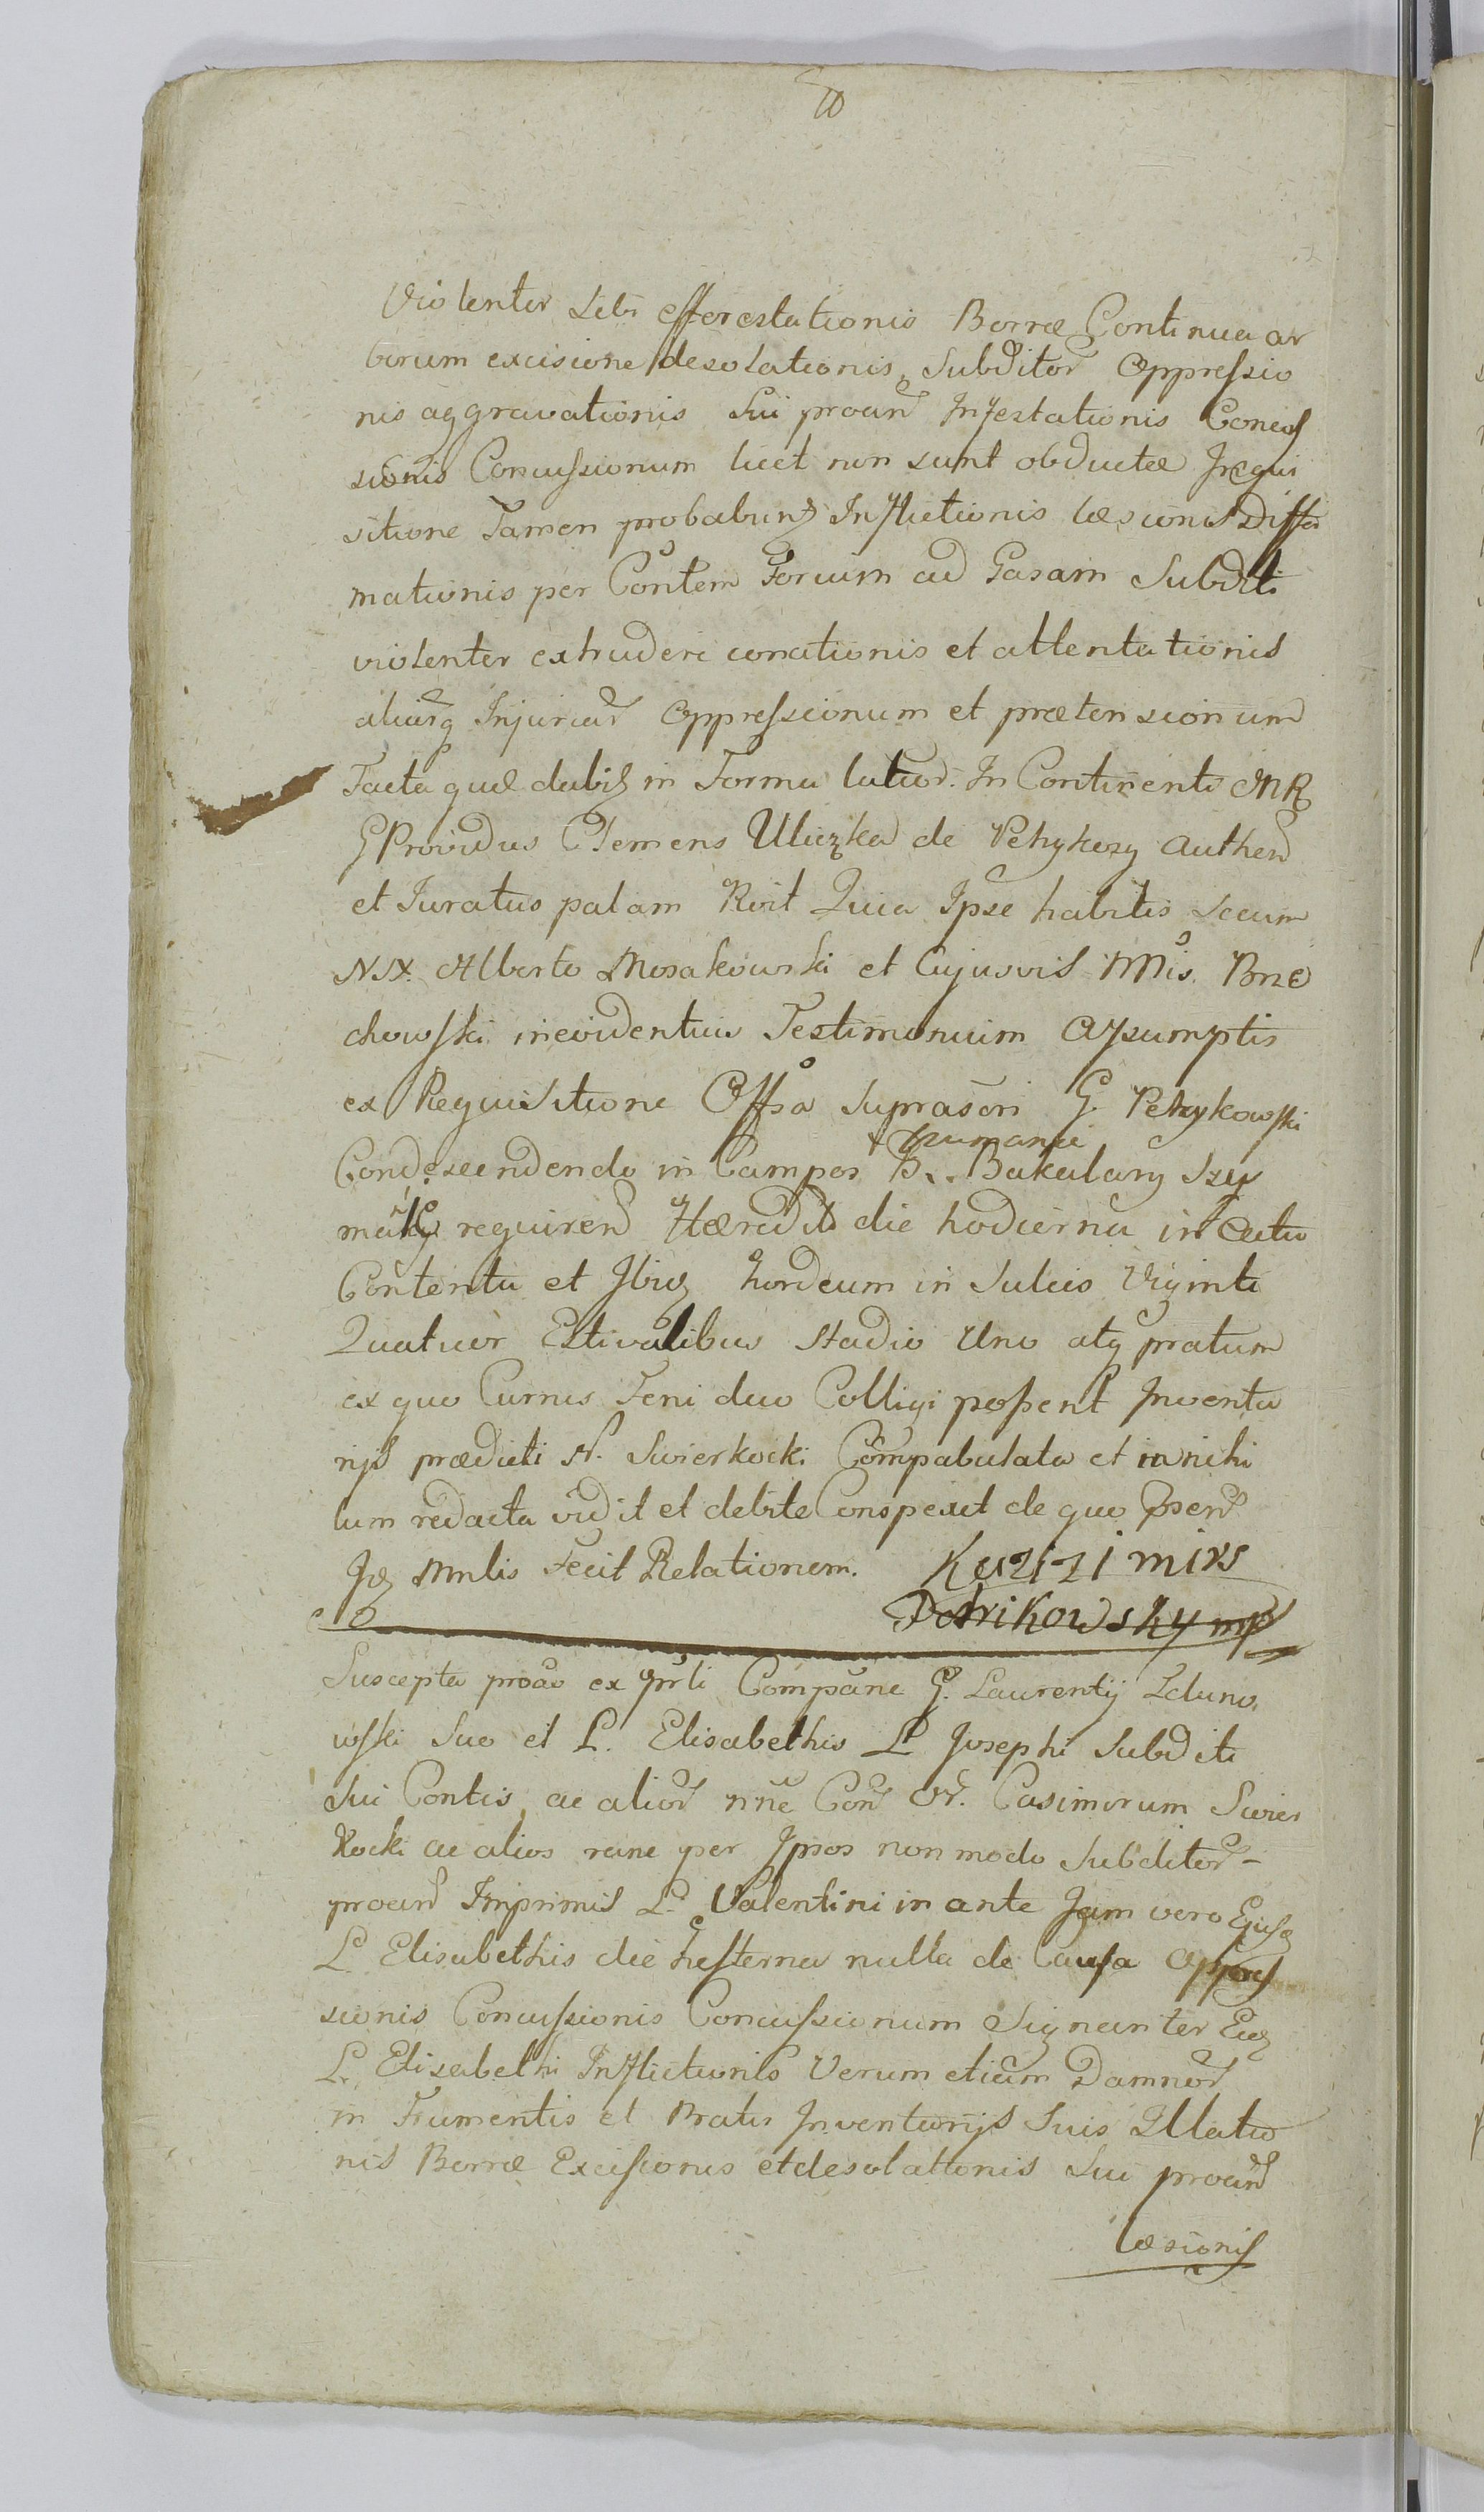 Violenter Sibi efforestationis Borræ Continua ar
borum excisione desolationis, Subditor Oppressio
nis aggravationis Sui proań Infestationis Concus
sionis Concussionum licet non sunt obductæ Inqui
sitione Tamen probabunt Inflictionis læsionis Diffa
mationis per Contem Forum ad Casam Subditi
violenter extrudere conationis et attentationis
aliarq Injuriar Oppressionum et prætensionum
Facta quæ dubiз in Forma latior. In Continenti MR
G Providus Clemens Uliczka de Petrykozy Authen
et Juratus palam Rvit Quia Ipse habitis Secum
NN. Alberto Mosakowski et Cujusvis MMis. Brze
chowski inevidentius Testimonium Assumptis
ex Requisitione Offsa Suprascri G. Petrykowski
Condescendendo in Campos Bakalarz Szy
requiren Hæredit die hodierna in Actu
Contentu et Ibiq hordeum in Sulcis Viginti
Quatuor Estivalibus Stadio Uno atq pratum
ex quo Currus Feni duo Colligi possent Inventa
rijs prædicti N. Swierkocki Compabulata et in nihi
lum redacta vidit et debite Conspexit de quo Præsen
Jdз Mnlis Fecit Relationem. Kazi2imirs
Petrikowsky mp
Suscepta proao ex prli Compane G. Laurentij Zduno,
wski Suo et L. Elisabethis L Josephi Subditi
Sui Contis ac alior nne Con GN. Casimirum Swier
kocki ac alios rane per Ipsos non modo Subditor-
proań Imprimis L. Valentini in ante Jam vero Ejusd
L Elisabethis die hesterna nulla de Causa Oppres
sionis Concussionis Concussionum Signanter Ejusd
L. Elisabethi Inflictionis Verum etiam Damnor
in Frumentis et Pratis Inventarijs Suis Illatio
nis Borræ Excisionis et desolationis Sui proań
læsionis